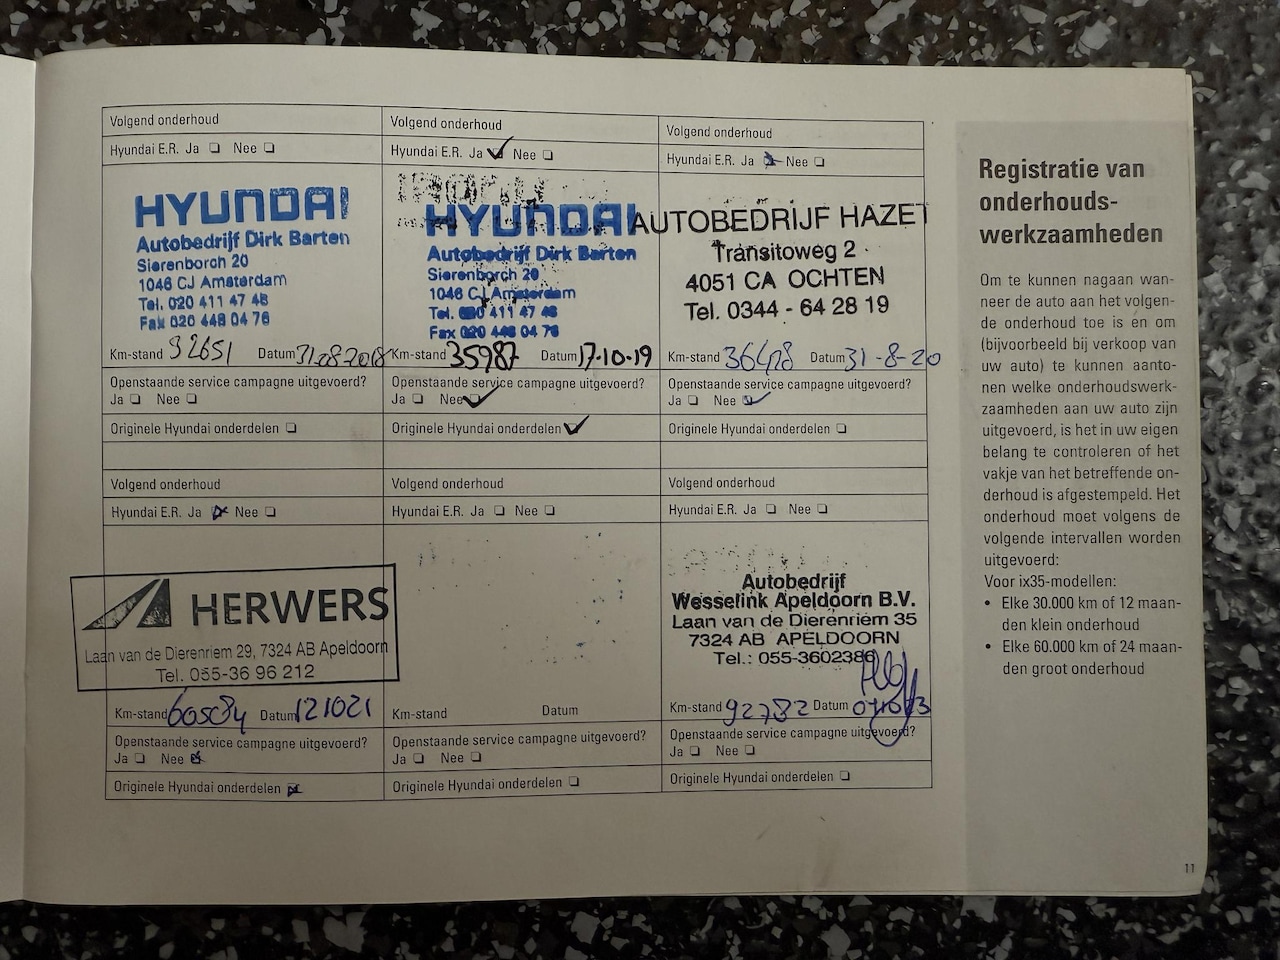 Volgend onderhoud
Hyundai E.R. Ja Nee
HYUNDAI
Autobedrijf Dirk Barten
Sierenborch 20
1046 CJ Amsterdam
Tel. 020 411 47 46
Fax 020 448 04 76
Km-stand 32651 Datum 31-28-2018
Openstaande service campagne uitgevoerd?
Ja Nee
Originele Hyundai onderdelen
Volgend onderhoud
Hyundai E.R. Ja Nee
HYUNDAI
Autobedrijf Dirk Barten
Sierenborch 20
1046 CJ Amsterdam
Tel. 020 411 47 46
Fax 020 448 04 76
Km-stand 35987 Datum 17-10-19
Openstaande service campagne uitgevoerd?
Ja Nee
Originele Hyundai onderdelen
Volgend onderhoud
Hyundai E.R. Ja Nee
AUTOBEDRIJF HAZET
Transitoweg 2
4051 CA OCHTEN
Tel. 0344 - 64 28 19
Km-stand Datum 31-8-20
Openstaande service campagne uitgevoerd?
Ja Nee
Originele Hyundai onderdelen
Volgend onderhoud
Hyundai E.R. Ja Nee
HERWERS
Laan van de Dierenriem 29, 7324 AB Apeldoorn
Tel. 055-36 96 212
Km-stand Datum 121021
Openstaande service campagne uitgevoerd?
Ja Nee
Originele Hyundai onderdelen
Volgend onderhoud
Hyundai E.R. Ja Nee
Km-stand Datum
Openstaande service campagne uitgevoerd?
Ja Nee
Originele Hyundai onderdelen
Volgend onderhoud
Hyundai E.R. Ja Nee
Autobedrijf
Wesselink Apeldoorn B.V.
Laan van de Dierenriem 35
7324 AB APELDOORN
Tel.: 055-3602386
Km-stand 92782 Datum
Openstaande service campagne uitgevoerd?
Ja Nee
Originele Hyundai onderdelen
Registratie van
onderhouds-
werkzaamheden
Om te kunnen nagaan wan-
neer de auto aan het volgen-
de onderhoud toe is en om
(bijvoorbeeld bij verkoop van
uw auto) te kunnen aanto-
nen welke onderhoudswerk-
zaamheden aan uw auto zijn
uitgevoerd, is het in uw eigen
belang te controleren of het
vakje van het betreffende on-
derhoud is afgestempeld. Het
onderhoud moet volgens de
volgende intervallen worden
uitgevoerd:
Voor ix35-modellen:
• Elke 30.000 km of 12 maan-
den klein onderhoud
• Elke 60.000 km of 24 maan-
den groot onderhoud
11